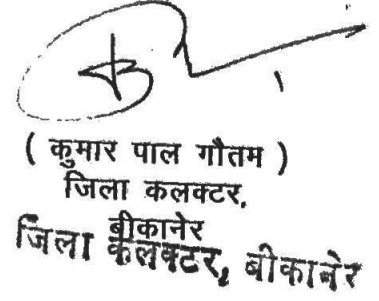 ( कुमार पाल गौतम )
जिला कलक्टर,
बीकानेर
जिला कलक्टर, बीकानेर